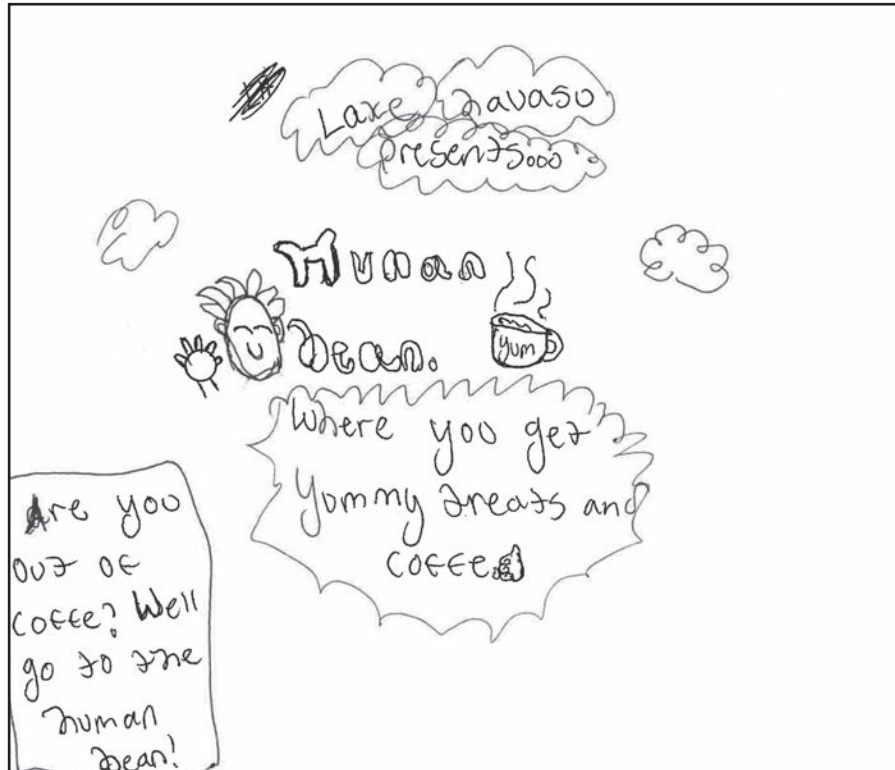 Lake Havasu
Presents...
Human
Bean.
Yum
Where you get
yummy treats and
coffe
Are you
out of
coffe? Well
go to the
human
bean!